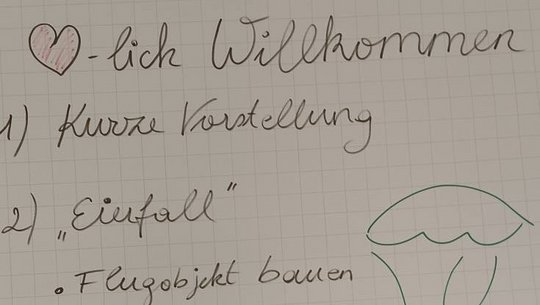 -lich Willkommen
1) Kurze Vorstellung
2) „Einfall“
• Flugobjekt bauen